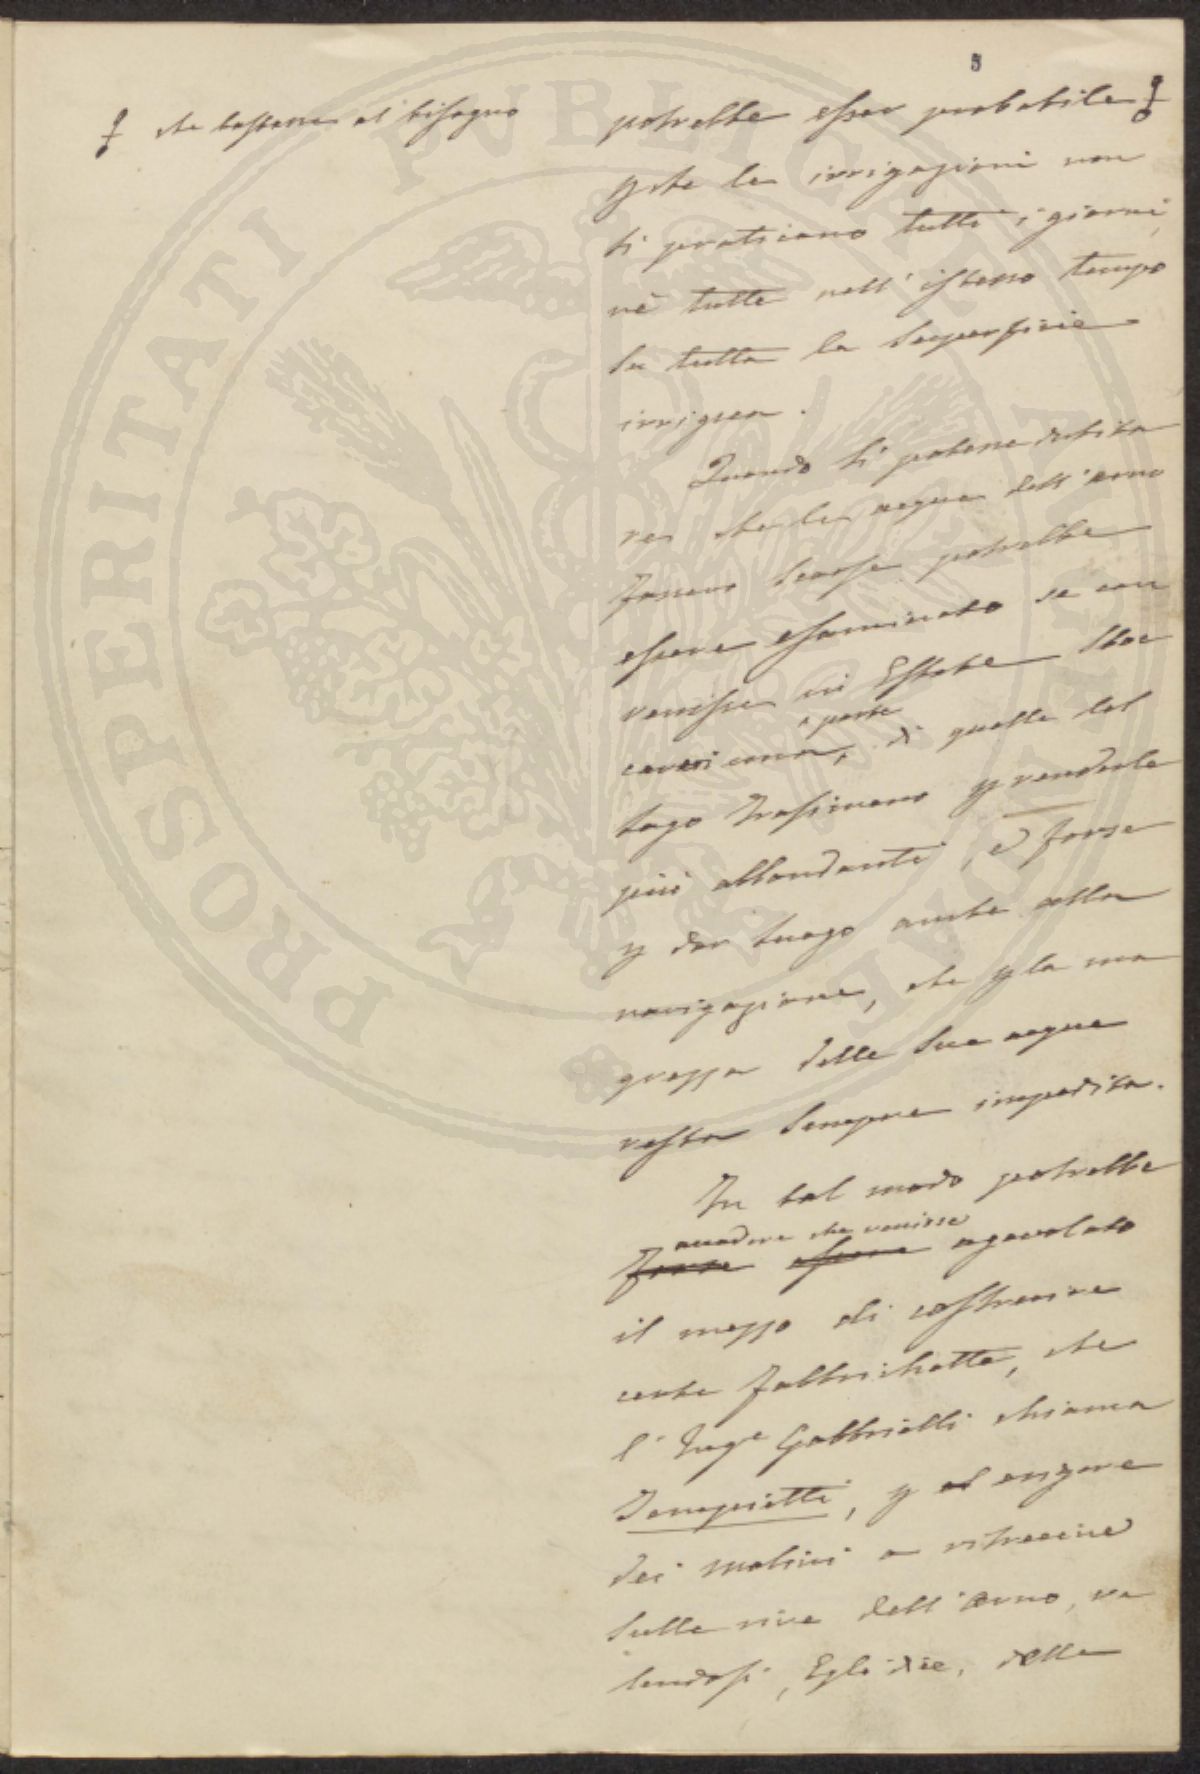 5
che bastasse al bisogno
potrebbe esser probabile
pche le irrigazioni non
si praticano tutti i giorni,
nè tutte nell'istesso tempo
su tutta la superficie
irrigua.
Quando si potesse dubita
re, che le acque dell'arno
fossero scarse potrebbe
essere esaminato se con
venisse in Estate
a parte di quelle del
Lago Trasimeno p renderle
più abbondanti, e forse
p dar luogo anche alla
navigazione, che p la ma
grezza delle sue acque
resta sempre impedita.
In tal modo potrebbe
accadere che venisse
forse essere agevolato
il mezzo di costruire
certe fabbrichette, che
l'Inge Gabbrielli chiama
, p ad
dei molini a ritrecine
sulle rive dell'arno, va
lendosi, Egli dice, delle
PROSPERITATI PUBLICAE AUGENDAE